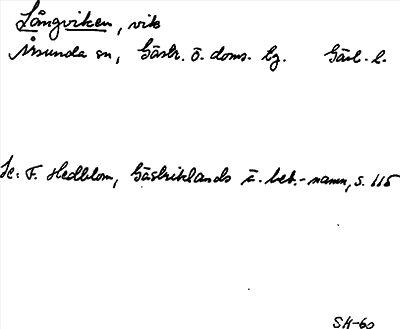 Långviken, vik
Årsunda sn, Gästr. ö. doms. tg. Gävl. l.
Se: F. Hedblom, Gästriklands ä. beb.-namn, s. 115
SH-60